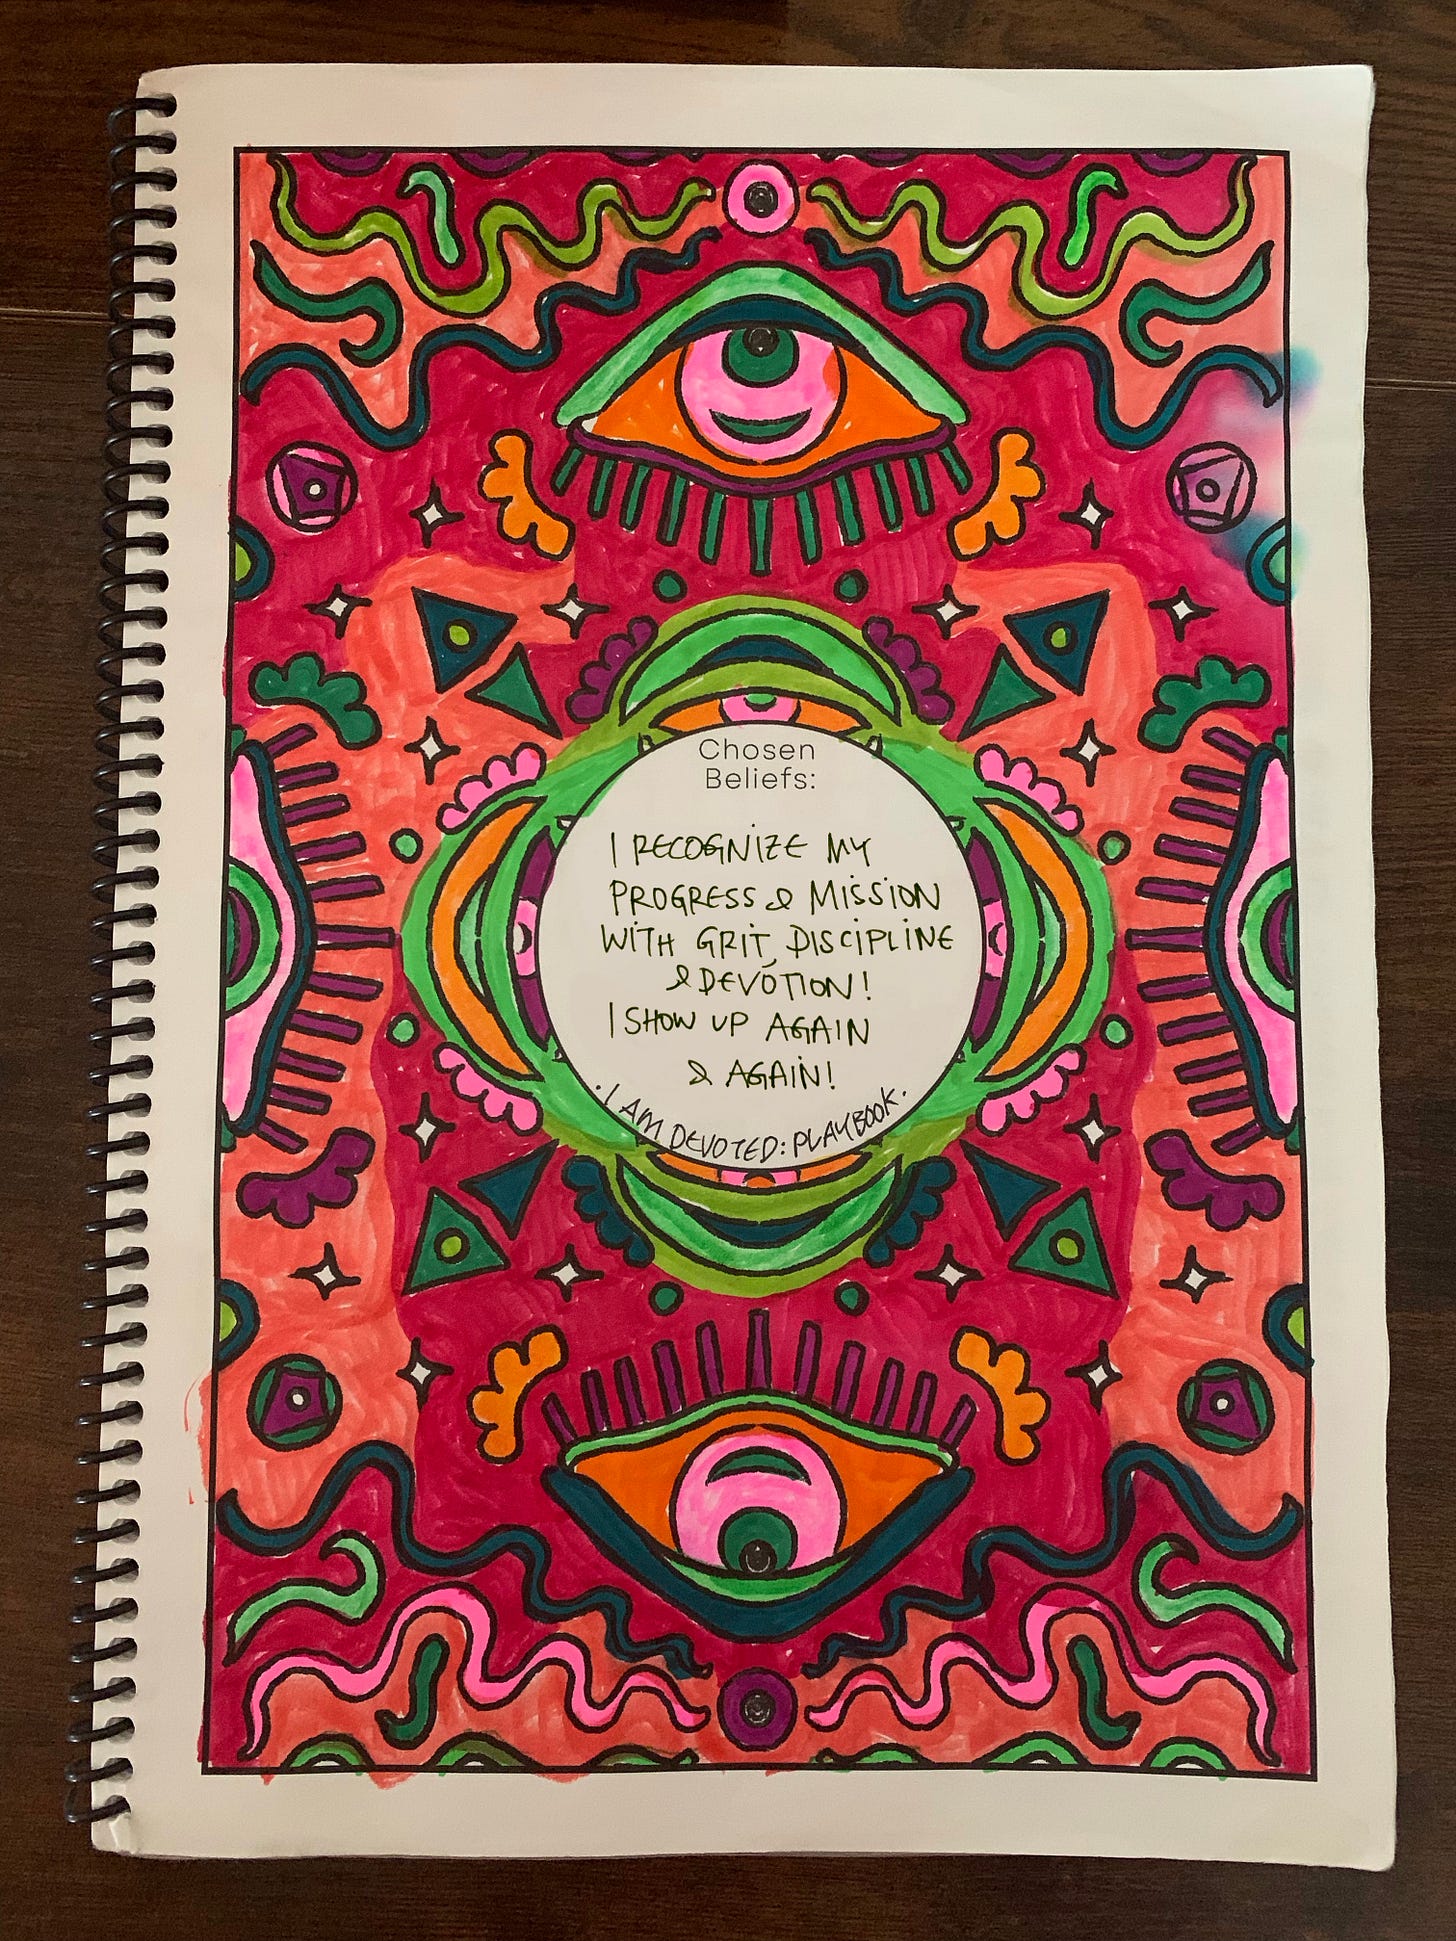 Chosen
Beliefs:
I RECOGNIZE MY
PROGRESS & MISSION
WITH GRIT, DISCIPLINE
& DEVOTION!
I SHOW UP AGAIN
& AGAIN!
· I AM DEVOTED: PLAYBOOK.